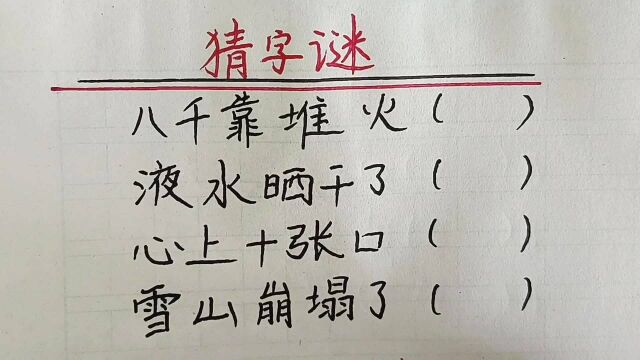 猜字谜
八千靠堆火（ ）
液水晒干了（ ）
心上十张口（ ）
雪山崩塌了（ ）